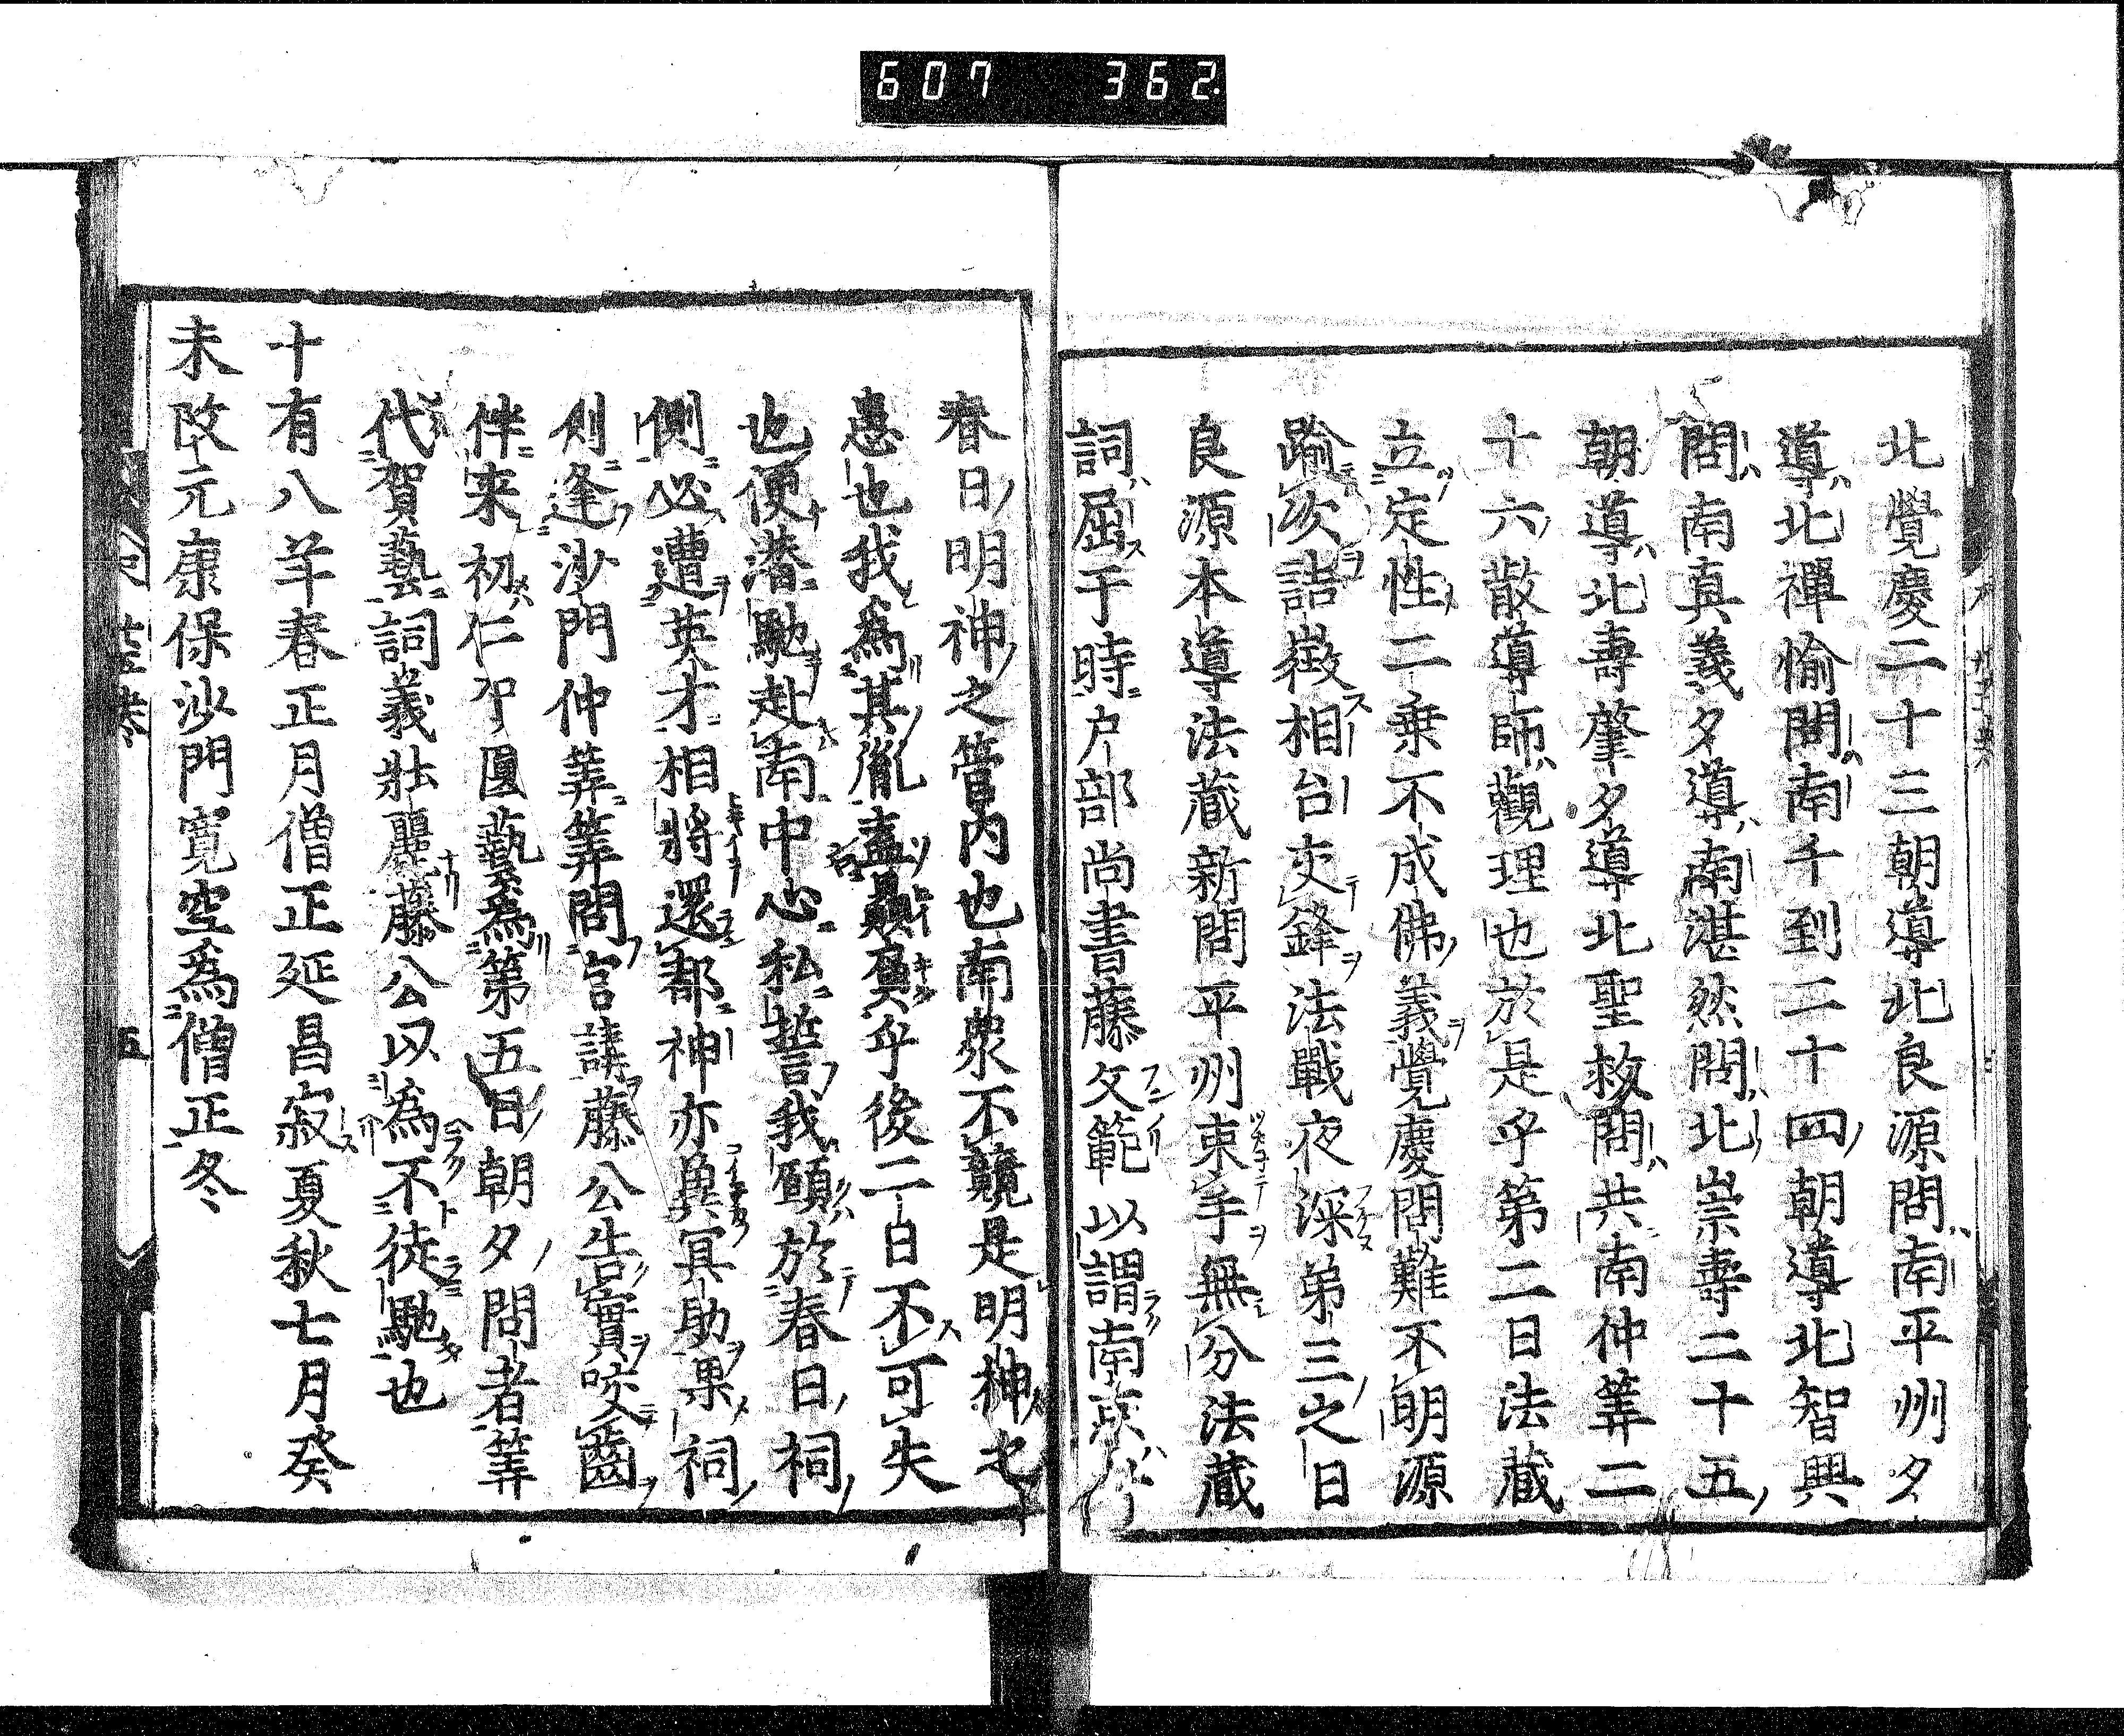 607 362
北覺慶二十三朝導北良源問南平州夕
導北禪愉問南千到二十四朝導北智興
問南真義夕導南湛然問北崇壽二十五
朝導北壽肇夕導北聖救問共南仲筭二
十六散導師觀理也於是乎第二日法藏
立定性二乗不成佛義覺慶問難不明源
踰次詰徴相台交鋒法戰夜深弟三之日
良源本導法藏新問平州束手無分法藏
詞屈于時户部尚書藤文範以謂南京
春日明神之管内也南衆不競是明神之
恚也我為其胤盍顯奠乎後二日不可失
也便潜馳赴南中心私誓我願於春日祠
側必遭英才相將還都神亦奠冥助果祠
側逢沙門仲筭筭問官講藤公告實咬齒
伴来初仁賀圓藝為第五日朝夕問者筭
代賀藝詞義壮麗藤公以為不徒馳也
十有八年春正月僧正延昌寂夏秋七月癸
未改元康保沙門寛空為僧正冬
五